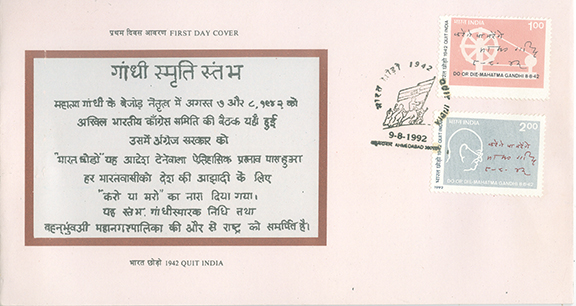 प्रथम दिवस आवरण FIRST DAY COVER
गांधी स्मृति स्तंभ
महात्मा गांधी के बेजोड़ नेतृत्व में अगस्त ७ और ८, १९४२ को
अखिल भारतीय काँग्रेस समिति की बैठक यहाँ हुई
उसमें अंग्रेज सरकार को
"भारत छोडो" यह आदेश देनेवाला ऐतिहासिक प्रस्ताव पास हुआ
हर भारतवासीको देश की आझादी के लिए
"करो या मरो" का नारा दिया गया।
यह स्तंभ, गांधीस्मारक निधि तथा
बृहन्मुंबई महानगरपालिका की ओर से राष्ट्र को समर्पित है।
भारत छोड़ो 1942 QUIT INDIA
भारत छोड़ो 1942 QUIT INDIA
9-8-1992
अहमदाबाद AHMEDABAD
भारत INDIA
1.00
भारत छोड़ो 1942 QUIT INDIA
करेंगे या मरेंगे
DO OR DIE-MAHATMA GANDHI 8-8-42
भारत INDIA
2.00
भारत छोड़ो 1942 QUIT INDIA
करेंगे या मरेंगे
DO OR DIE-MAHATMA GANDHI 8-8-42
1992